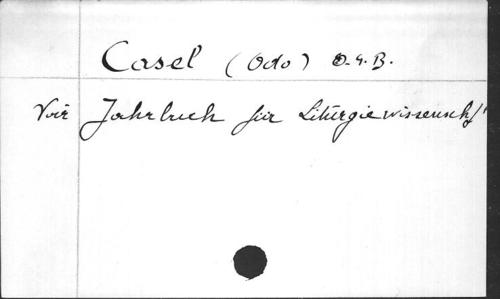 Casel (Odo) O.S.B.
Voir Jahrbuch für Liturgiewissenschft